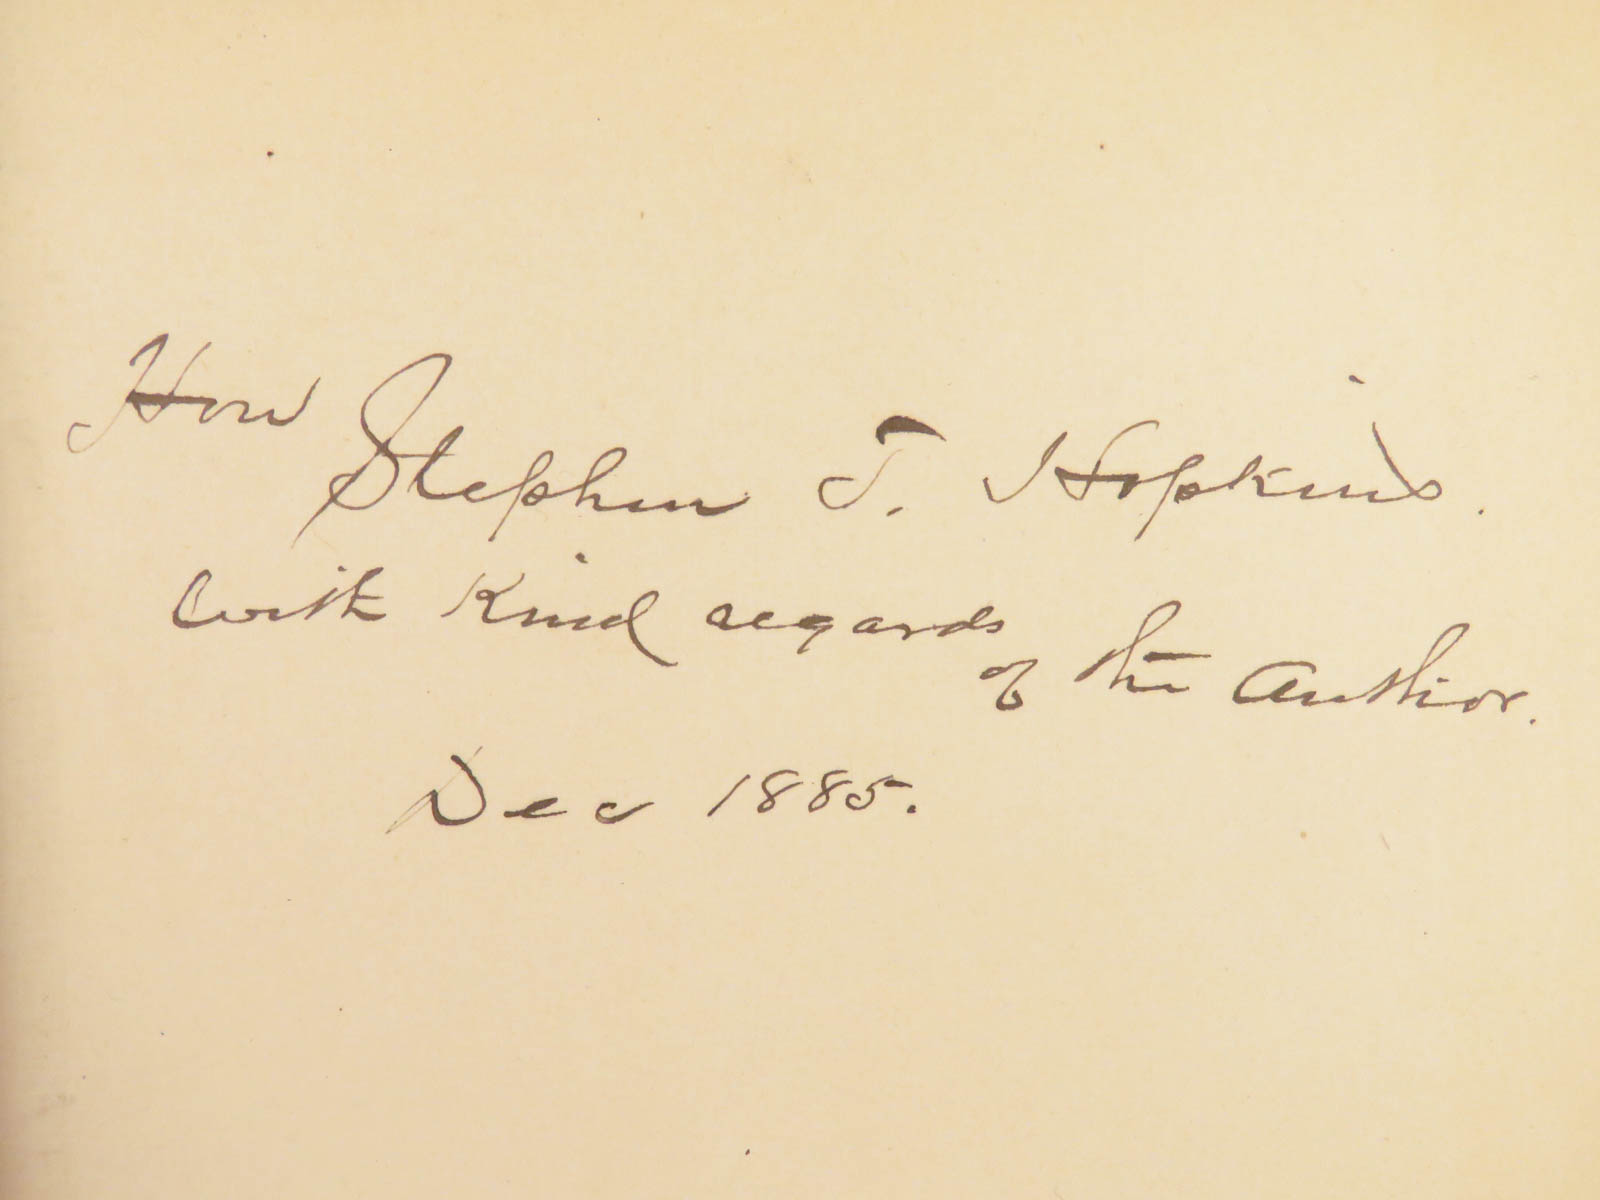 Hon
Stephen T. Hopkins.
with kind regards
of the author.
Dec 1885.